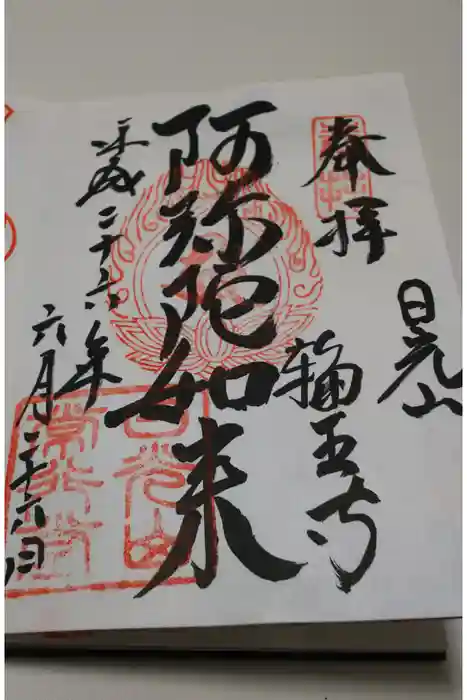 日光山
奉拝
輪王寺
阿弥陀如来
平成二十六年
六月二十八日